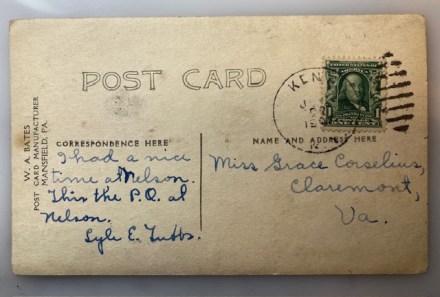 POST CARD
W. A. BATES
POST CARD MANUFACTURER
MANSFIELD, PA.
KEN
CORRESPONDENCE HERE
I had a nice
time at Nelson.
This the P.O. at
Nelson.
Lyle E. Tubbs.
NAME AND ADDRESS HERE
Miss Grace Corselius,
Claremont,
Va.